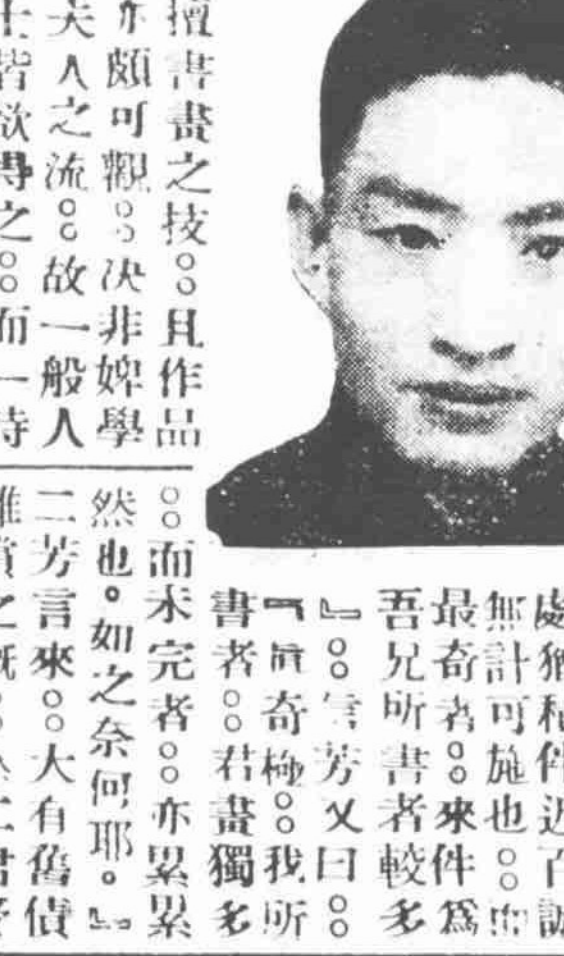 擅書畫之技。。且作品
亦頗可觀。。决非婢學
夫人之流。。故一般人
士皆欲得之。。而一時
處猶積件近百誠
無計可施也。。
最奇者。。來件爲
吾兄所書者較多
』。。雪芳又曰。。
『眞奇極。。我所
書者。。君畫獨多
。。而未完者。。亦累累
然也。如之奈何耶。』
二芳言來。。大有舊債
難償之慨。。二君